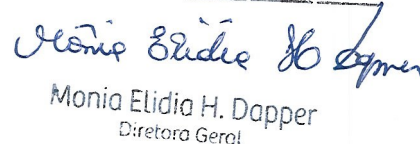 Mônia Elidia H Dapper
Monia Elidia H. Dapper
Diretora Geral